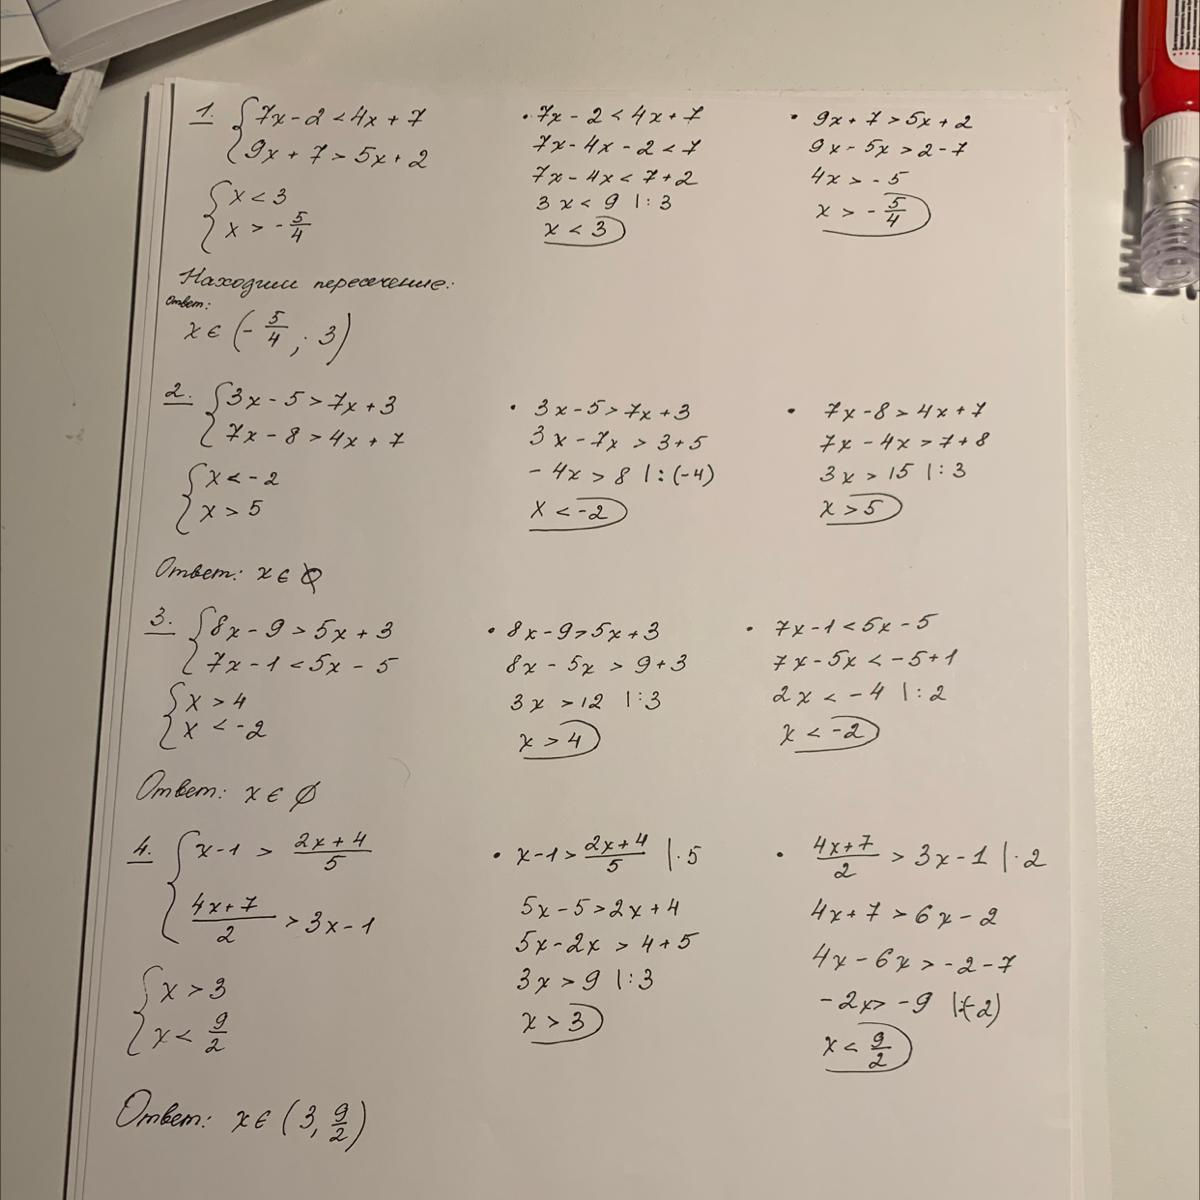 1. {7x-2<4x+7
{9x+7>5x+2
{x<3
{x>-5/4
• 7x-2<4x+7
7x-4x-2<7
7x-4x<7+2
3x<9 |:3
x<3
• 9x+7>5x+2
9x-5x>2-7
4x>-5
x>-5/4
Находим пересечение:
Ответ:
x∈(-5/4; 3)
2. {3x-5>7x+3
{7x-8>4x+7
{x<-2
{x>5
• 3x-5>7x+3
3x-7x>3+5
-4x>8 |:(-4)
x<-2
• 7x-8>4x+7
7x-4x>7+8
3x>15 |:3
x>5
Ответ: x∈∅
3. {8x-9>5x+3
{7x-1<5x-5
{x>4
{x<-2
• 8x-9>5x+3
8x-5x>9+3
3x>12 |:3
x>4
• 7x-1<5x-5
7x-5x<-5+1
2x<-4 |:2
x<-2
Ответ: x∈∅
4. {x-1>(2x+4)/5
{(4x+7)/2>3x-1
{x>3
{x<9/2
• x-1>(2x+4)/5 |·5
5x-5>2x+4
5x-2x>4+5
3x>9 |:3
x>3
• (4x+7)/2>3x-1 |·2
4x+7>6x-2
4x-6x>-2-7
-2x>-9 |:(-2)
x<9/2
Ответ: x∈(3, 9/2)